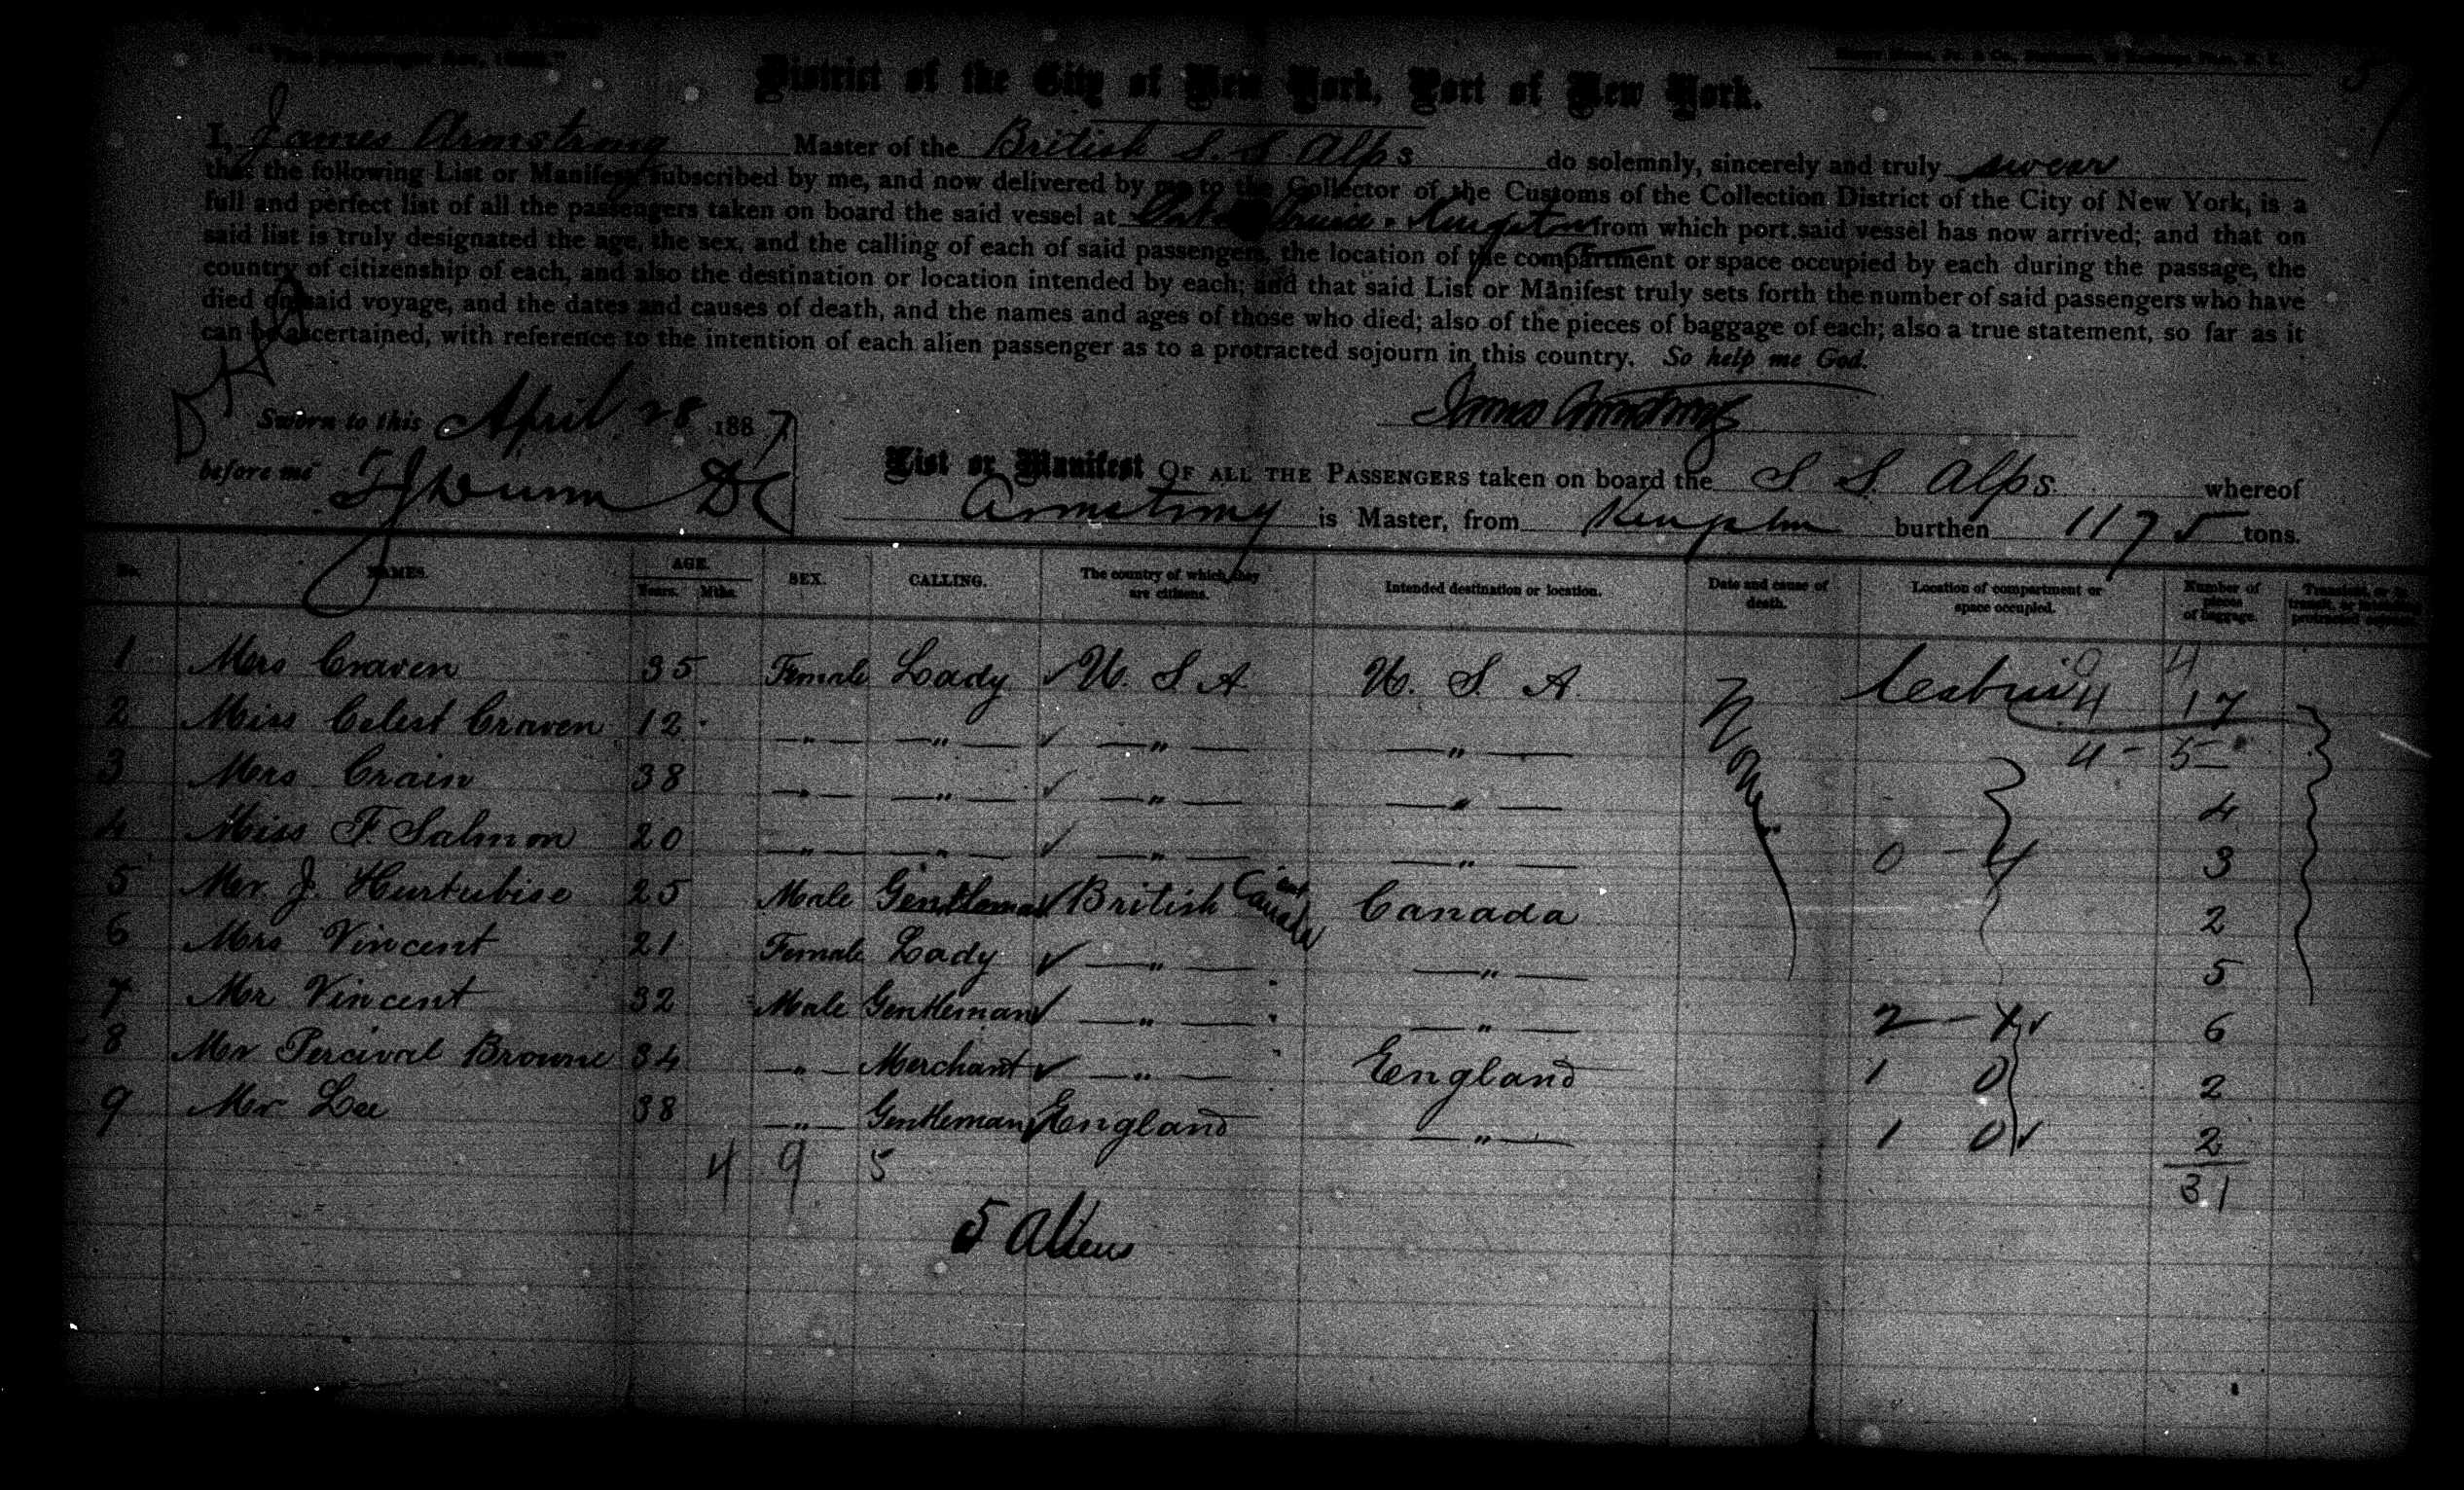 "The Passenger Act, 1882."
District of the City of New York, Port of New York.
I, James Armstrong Master of the British S. S Alps do solemnly, sincerely and truly swear
that the following List or Manifest subscribed by me, and now delivered by me to the Collector of the Customs of the Collection District of the City of New York, is a
full and perfect list of all the passengers taken on board the said vessel at Kingston from which port said vessel has now arrived; and that on
said list is truly designated the age, the sex, and the calling of each of said passengers, the location of the compartment or space occupied by each during the passage, the
country of citizenship of each, and also the destination or location intended by each; and that said List or Manifest truly sets forth the number of said passengers who have
died on said voyage, and the dates and causes of death, and the names and ages of those who died; also of the pieces of baggage of each; also a true statement, so far as it
can be ascertained, with reference to the intention of each alien passenger as to a protracted sojourn in this country. So help me God.
James Armstrong
Sworn to this April 28 1887
before me TJ Dunn DC
List or Manifest OF ALL THE PASSENGERS taken on board the S. S. Alps whereof
Armstrong is Master, from Kingston burthen 1175 tons.
No. NAMES. AGE. Years. Mths. SEX. CALLING. The country of which they are citizens. Intended destination or location. Date and cause of death. Location of compartment or space occupied. Number of pieces of baggage.
1 Mrs Craven 35 Female Lady U. S A U. S. A. None Cabin 4 17
2 Miss Celest Craven 12 " " " " 4 - 5
3 Mrs Crain 38 " " " " 4
4 Miss F. Salmon 20 " " " " 0 - 4 3
5 Mr J. Hurtubise 25 Male Gentleman British Canada Canada 2
6 Mrs Vincent 21 Female Lady " " 5
7 Mr Vincent 32 Male Gentleman " " 2 6
8 Mr Percival Browne 34 " Merchant " England 1 0 2
9 Mr Lee 38 " Gentleman England " 1 0 2
4 9 5 31
5 Aliens